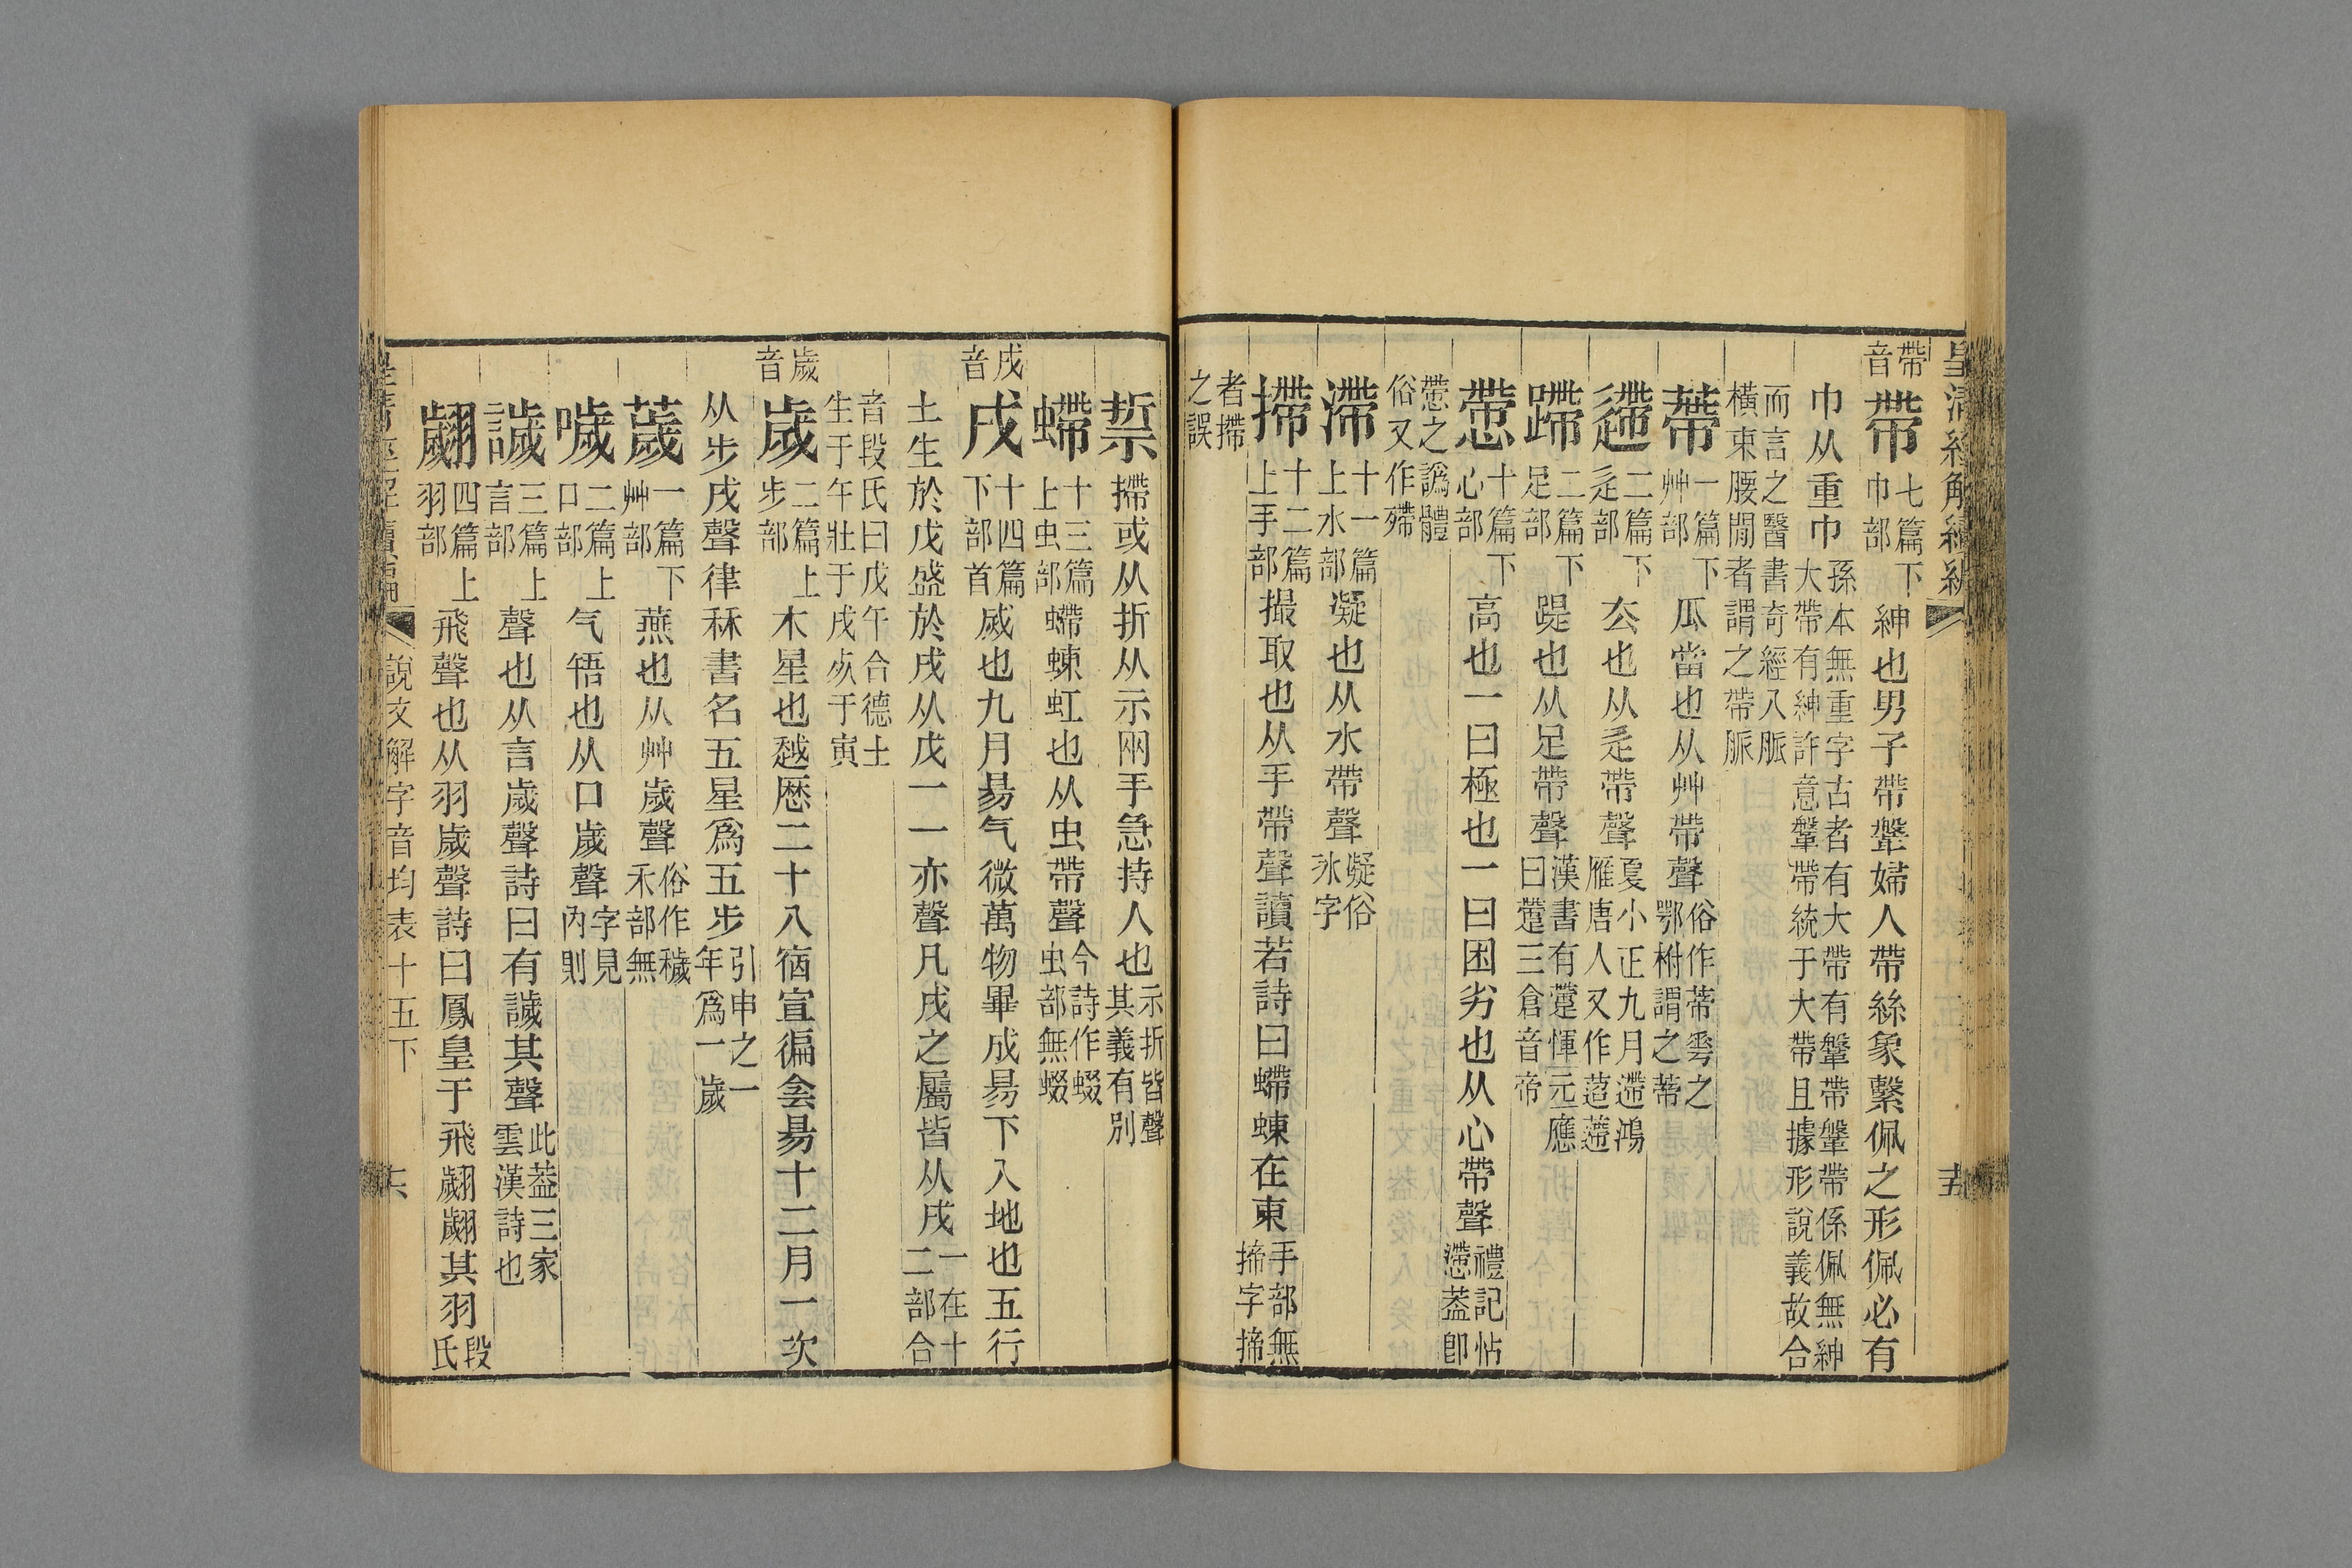 皇清經解續編
帶音 帶 七篇下巾部 紳也男子帶鞶婦人帶絲象繫佩之形佩必有
巾从重巾 孫本無重字古者有大帶有鞶帶鞶帶係佩無紳大帶有紳許意鞶帶統于大帶且據形說義故合
而言之醫書奇經八脈橫束腰閒者謂之帶脈
蔕 一篇下艸部 瓜當也从艸帶聲 俗作蒂雩之鄂柎謂之蒂
遰 二篇下辵部 去也从辵帶聲 夏小正九月遰鴻雁唐人又作䓊蹛
蹛 二篇下足部 踶也从足帶聲 漢書有躉惲元應曰躉三倉音帝
懘 十篇下心部 高也一曰極也一曰困劣也从心帶聲 禮記怗懘葢卽
懘之譌體俗又作殢
滯 十一篇上水部 凝也从水帶聲 凝俗冰字
摕 十二篇上手部 撮取也从手帶聲讀若詩曰螮蝀在東 手部無揥字揥
者摕之誤
㨖 摕或从折从示兩手急持人也 示折皆聲其義有別
螮 十三篇上虫部 螮蝀虹也从虫帶聲 今詩作蝃虫部無蝃
戌音 戌 十四篇下部首 威也九月昜气微萬物畢成昜下入地也五行
土生於戊盛於戌从戊一一亦聲凡戌之屬皆从戌 一在十二部合
音段氏曰戊午合德土生于午壯于戌𣦸于寅
歲音 歲 二篇上步部 木星也越歷二十八宿宣徧侌昜十二月一次
从步戌聲律秝書名五星爲五步 引申之一年爲一歲
薉 一篇下艸部 蕪也从艸歲聲 俗作穢禾部無
噦 二篇上口部 气啎也从口歲聲 字見內則
䜕 三篇上言部 聲也从言歲聲詩曰有䜕其聲 此葢三家雲漢詩也
翽 四篇上羽部 飛聲也从羽歲聲詩曰鳳皇于飛翽翽其羽 段氏
說文解字音均表十五下 六